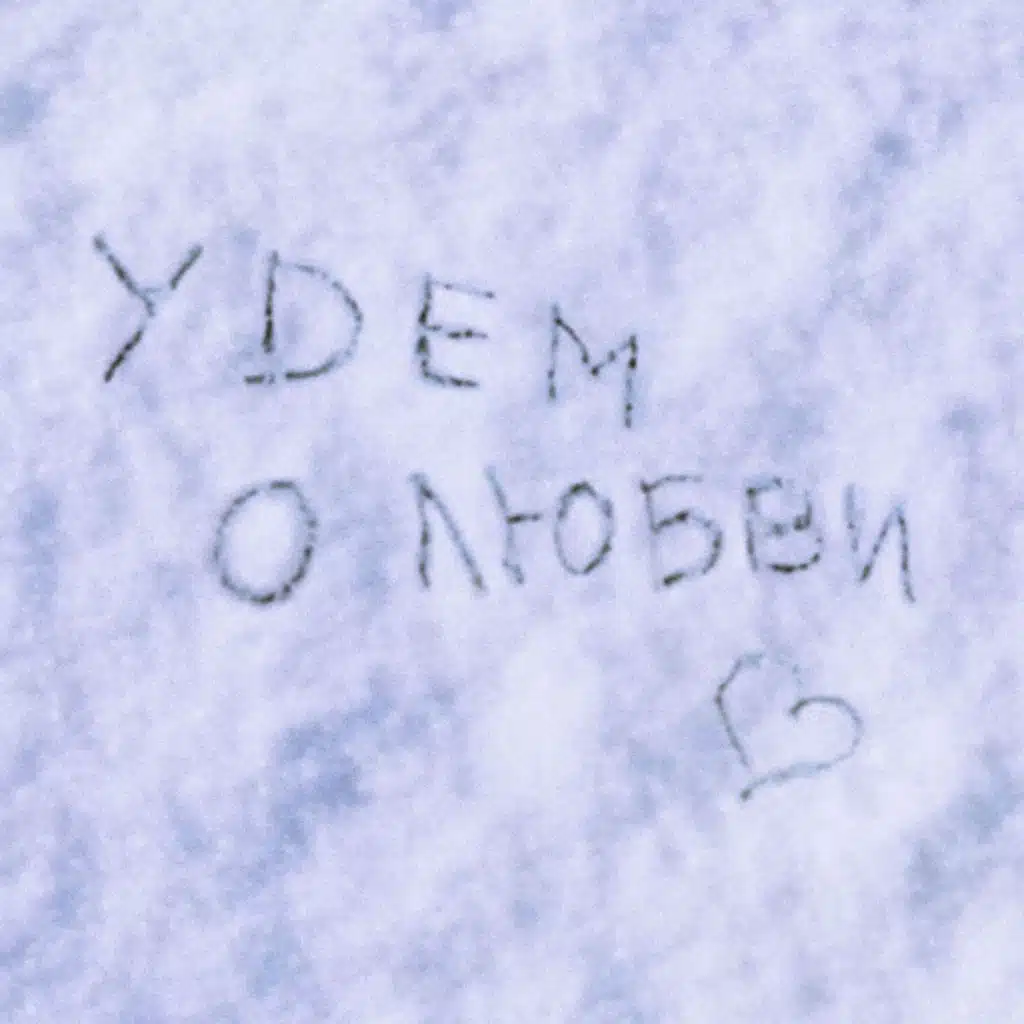 УDЕМ
О ЛЮБВИ